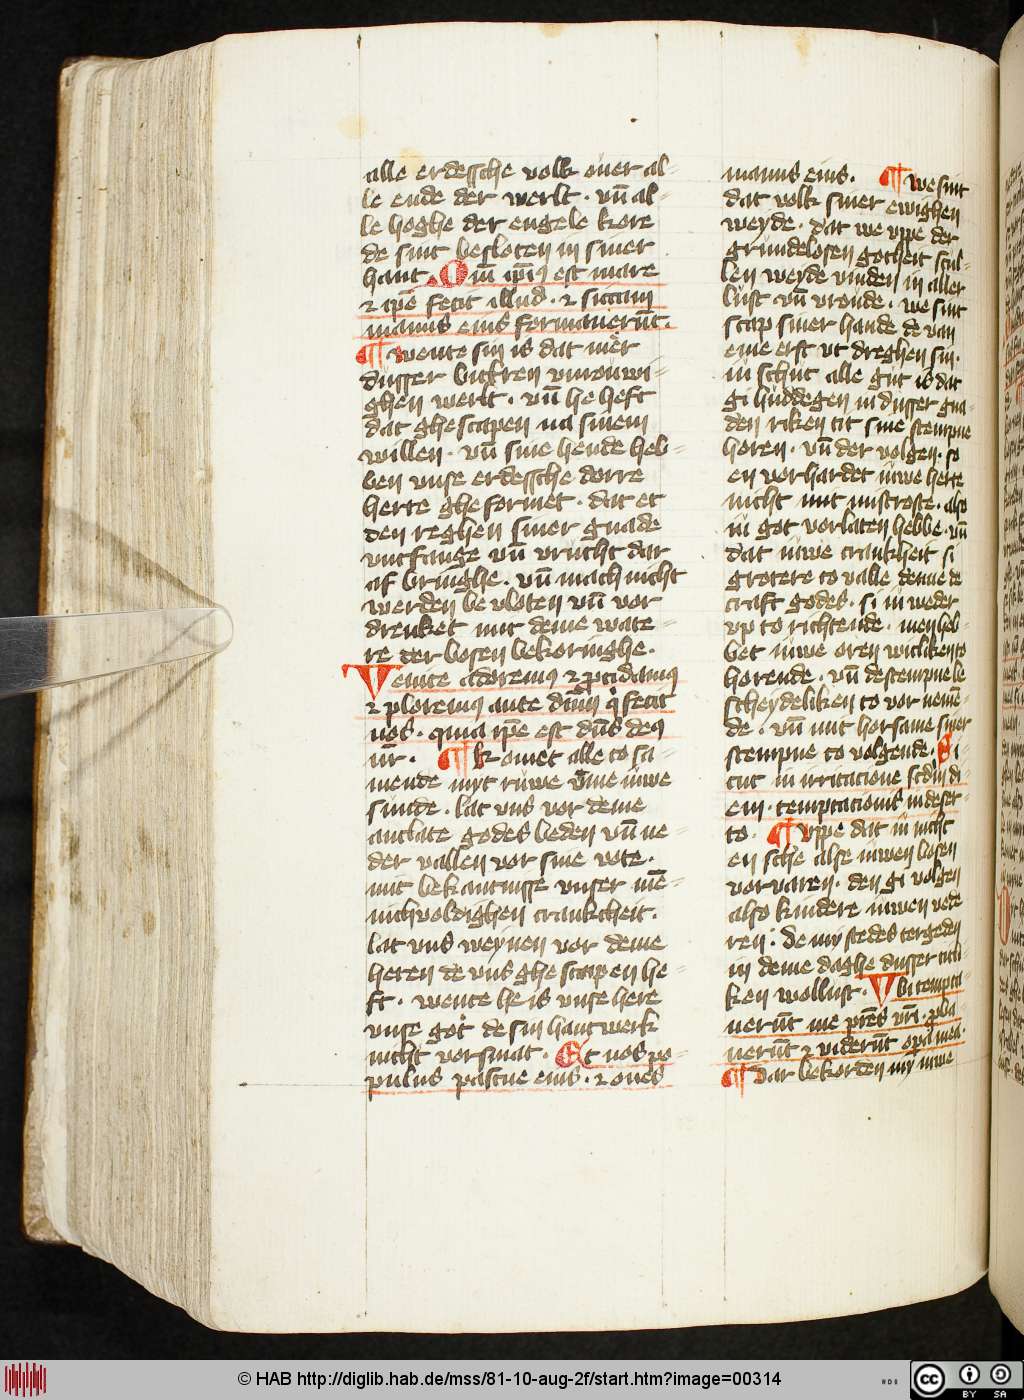 alle erdessche volk ouer al-
le ende der werlt · vn̄ al-
le hoghe der engele kore
de sint besloten in siner
hant · Qm̄ ipsiꝰ est mare
⁊ ip̄e fecit illud · ⁊ siccam
manus eius formauerūt ·
¶ wente sin is dat mer
dusser bitkren vnrouwi-
ghen werlt · vn̄ he heft
dat ghescapen na sinem
willen · vn̄ sine hende heb-
ben vnse erdessche dorre
herte ghe formet · dat et
den reghen siner gnade
vntfange vn̄ vrucht dar
af bringhe · vn̄ mach nicht
werden be vloten vn̄ vor
drenket mit deme wate-
re der bosen bekoringhe ·
Venite adoremꝰ ⁊ p̄cidamꝰ
⁊ ploremꝰ ante dn̄m q̇ fecit
nos · quia ip̄e est dn̄s deꝰ
nr̄ · ¶ komet alle to sa-
mende myt ruwe vm̄e iuwe
sunde · lat vns vor deme
antlate godes beden vn̄ ne-
der vallen vor sine vote ·
mit bekantnisse vnser me̅-
nichvoldighen crankcheit ·
lat vns weynen vor deme
heren de vns ghe scapen he-
ft · wente he is vnse here
vnse got de sin hant werk
nicht vorsmat · Et nos po-
pulus pascue eius · ⁊ oues
manus eius · ¶ we sint
dat volk siner ewighen
weyde · dat we vppe der
grundelosen gotheit scul-
len weyde vinden in aller
lust · vn̄ vroude · we sint
scap siner hande de van
eme erst vt dreghen sin ·
in schut alle gut is dat
gi huddegen in dusser gna-
den riken tit sine stempne
horen · vn̄ der volgen · so
en vorhardet iuwe herte
nicht mit mistroste · also
iu got vorlaten hebbe · vn̄
dat iuwe crankheit si
grotere to valle denne de
craft godes · si iu weder
vp to richtende · men heb-
bet iuwe oren witliken to
horende · vn̄ de stempne be
scheydeliken to vor nemē-
de · vn̄ mit horsame siner
stempne to volgende · Si-
cut in irritacione scd̄m di-
em · temptacionis in deser-
to · ¶ vppe dat iu nicht
en sche alse iuwen bosen
vorvaren · den gi volgen
also kindere iuwen vede
ren · De my stedes tergeden
in deme daghe dusser tich
ken wollust · Vbi tempta
uerūt me pr̄es vr̄i · p̄ba
uerūt ⁊ viderūt opa mea ·
¶ Dar bekorden my iuwe
© HAB http://diglib.hab.de/mss/81-10-aug-2f/start.htm?image=00314